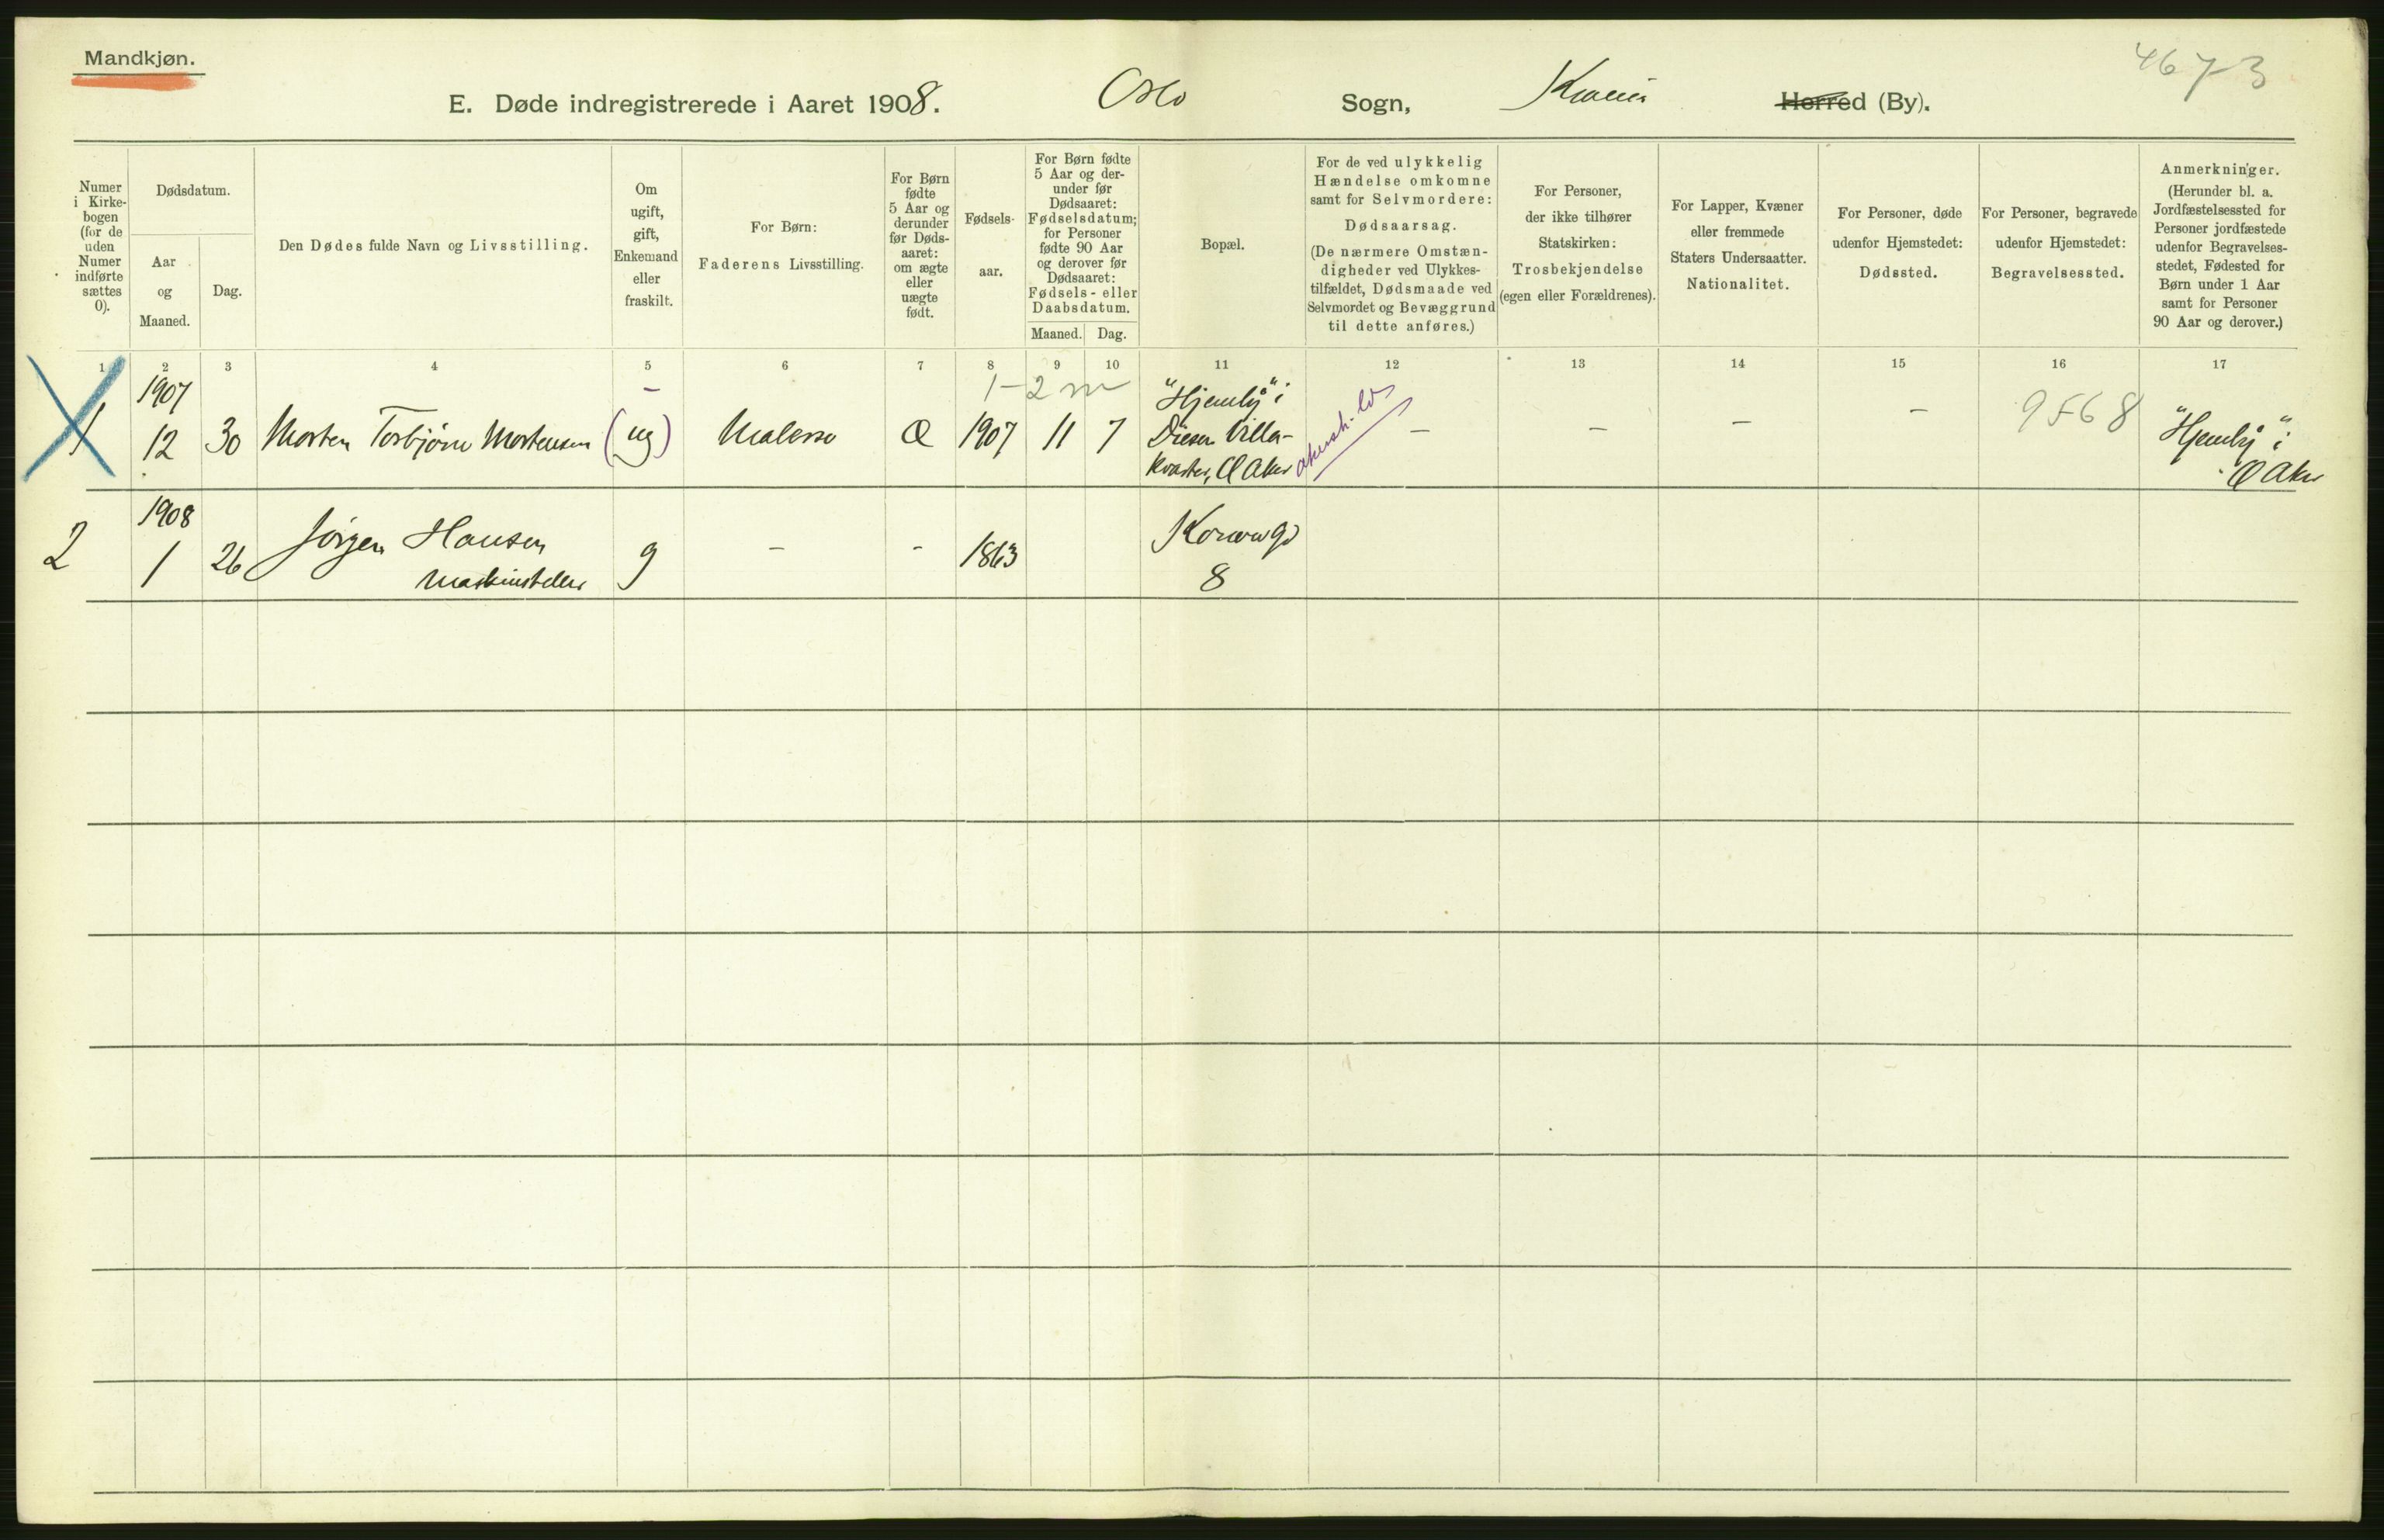 Mandkjøn.
4673
E. Døde indregistrerede i Aaret 1908. Oslo Sogn, Herred (By).
Numer i Kirkebogen (for de uden Numer indførte sættes 0).
Dødsdatum.
Aar og Maaned.
Dag.
Den Dødes fulde Navn og Livsstilling.
Om ugift, gift, Enkemand eller fraskilt.
For Børn: Faderens Livsstilling.
For Børn fødte 5 Aar og derunder før Dødsaaret: om ægte eller uægte født.
Fødselsaar.
For Børn fødte 5 Aar og derunder før Dødsaaret: Fødselsdatum; for Personer fødte 90 Aar og derover før Dødsaaret: Fødsels- eller Daabsdatum.
Maaned. Dag.
Bopæl.
For de ved ulykkelig Hændelse omkomne samt for Selvmordere: Dødsaarsag. (De nærmere Omstændigheder ved Ulykkestilfældet, Dødsmaade ved Selvmordet og Bevæggrund til dette anføres.)
For Personer, der ikke tilhører Statskirken: Trosbekjendelse (egen eller Forældrenes).
For Lapper, Kvæner eller fremmede Staters Undersaatter. Nationalitet.
For Personer, døde udenfor Hjemstedet: Dødssted.
For Personer, begravede udenfor Hjemstedet: Begravelsessted.
Anmerkninger. (Herunder bl. a. Jordfæstelsessted for Personer jordfæstede udenfor Begravelsesstedet, Fødested for Børn under 1 Aar samt for Personer 90 Aar og derover.)
1 2 3 4 5 6 7 8 9 10 11 12 13 14 15 16 17
1907 - 1-2 m "Hjemly" i
1 12 30 Morten Torbjørn Mortensen (ug) Malersv Æ 1907 11 7 Villa- - - - - 9568 "Hjemly" i
Ø Aker Ø Aker
1908
2 1 26 Jørgen Hansen g - - 1863
Maskinsteller 8